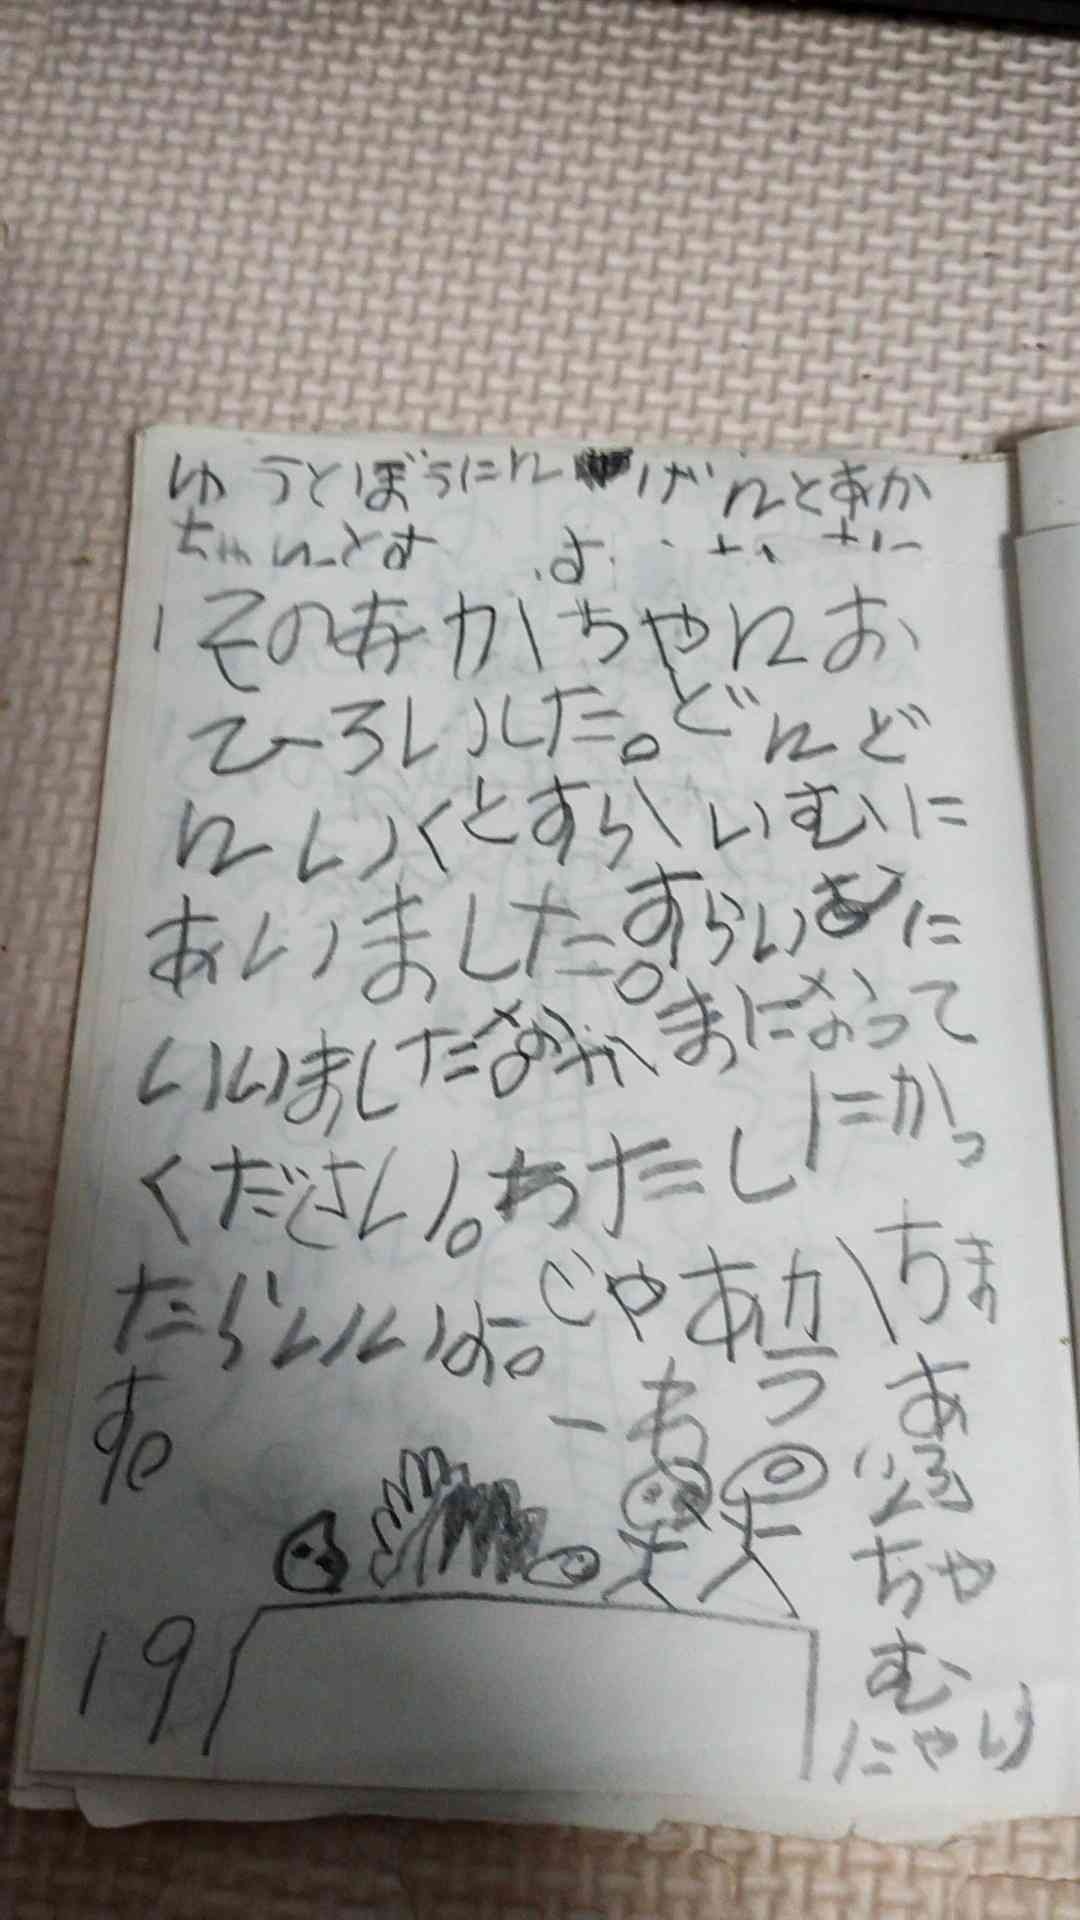 ゆうとぼうにん げんとあか
ちゃんとす
そのあかちゃんお
ひろいした。どんど
んいくとすらいむに
あいました。すらいむに
いいましたなかまになって
ください。わたしにかっ
たらいいよ。じゃあかちま
す。
ーもう
あ
ちゃ
む
にゃり
19